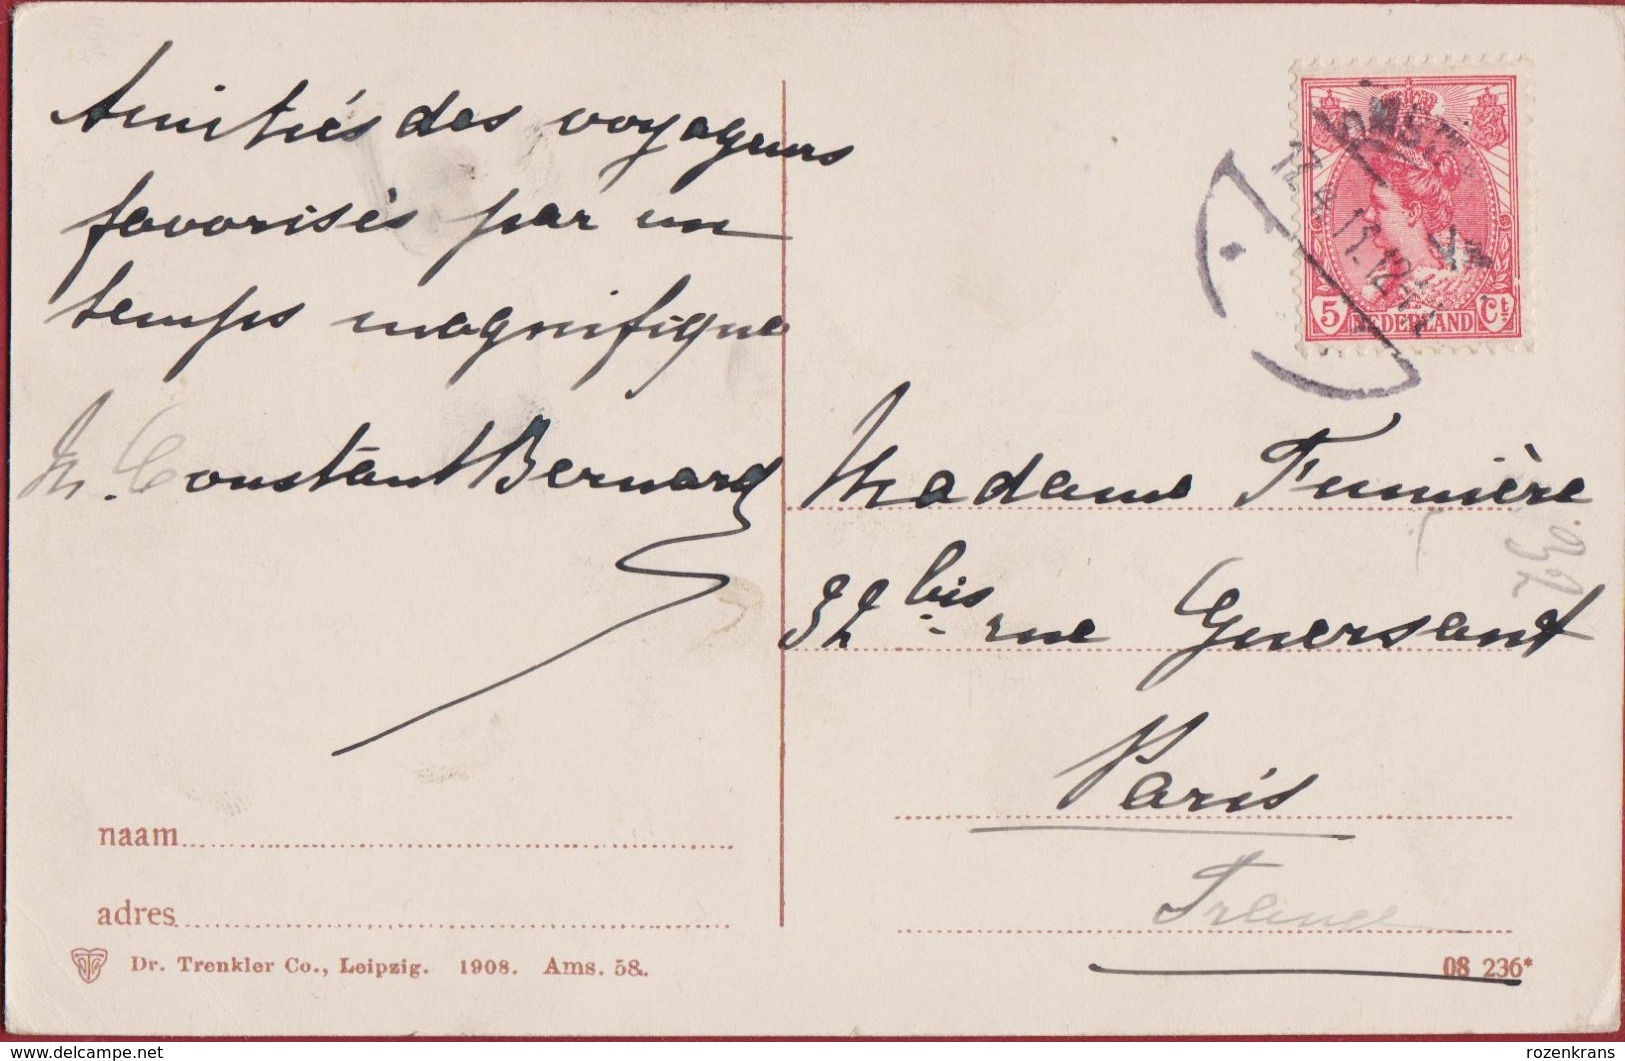 Amitiés des voyageurs
favorisés par un
temps magnifique
M. Constant Bernard
naam
adres
Dr. Trenkler Co., Leipzig. 1908. Ams. 58.
5 NEDERLAND Ct.
Madame Fumière
32 bis rue Guersant
Paris
France
32
08 236*
delcampe.net
rozenkrans